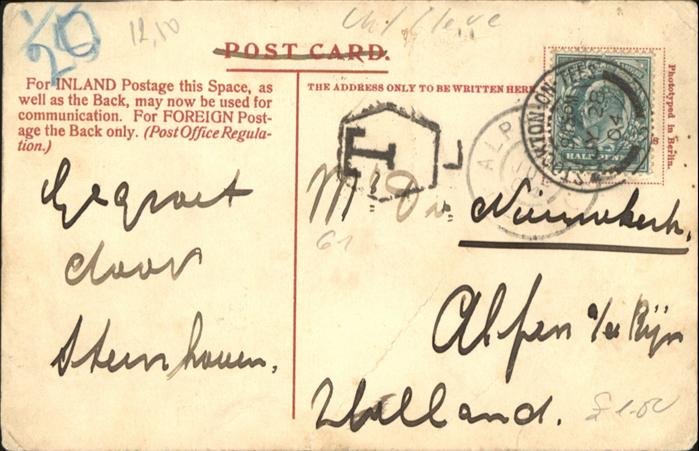 1/20
12,10
POST CARD.
For INLAND Postage this Space, as
well as the Back, may now be used for
communication. For FOREIGN Post-
age the Back only. (Post Office Regula-
tion.)
THE ADDRESS ONLY TO BE WRITTEN HERE
Phototyped in Berlin.
STOCKTON-ON-TEES
04
HALFPENNY
T
L
ALP
Gegroet
door
Steenhoven.
Mr. Dr. Nieuwkerk.
61
Alfen a/de Rijn
Holland.
£1.00